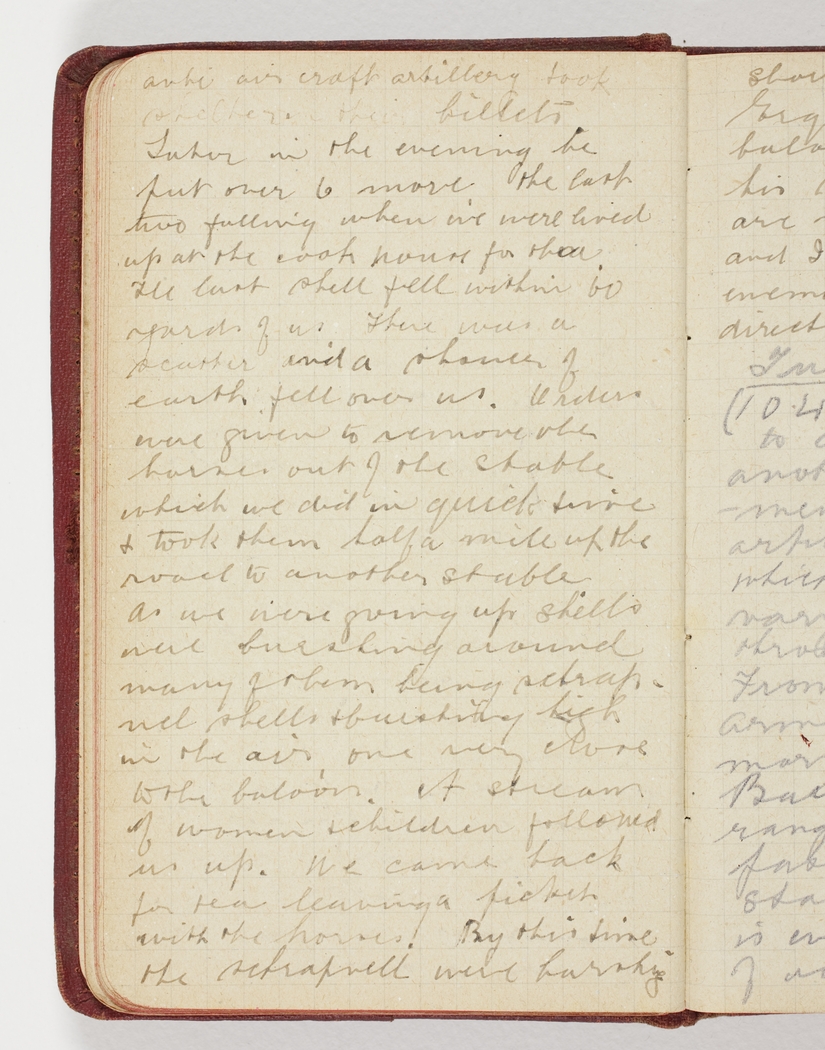 anti air craft artillery took
shelter in their billets
Later in the evening he
put over 6 more the last
two falling when we were lined
up at the cook house for tea
The last shell fell within 60
yards of us. There was a
scatter and a shower of
earth fell over us. Orders
were given to remove the
horses out of the stable
which we did in quick time
& took them half a mile up the
road to another stable
As we were going up shells
were bursting around
many of them being schrap-
nel shells & bursting high
in the air one very close
to the baloon. A stream
of women & children followed
us up. We came back
for tea leaving a picket
with the horses. By this time
the schrapnell were bursting
shou
Erq
balo
his
are
and I
enem
direct
In
(10.
to
anot
-men
arti
which
vari
From
arm
mor
rang
sta
is
of